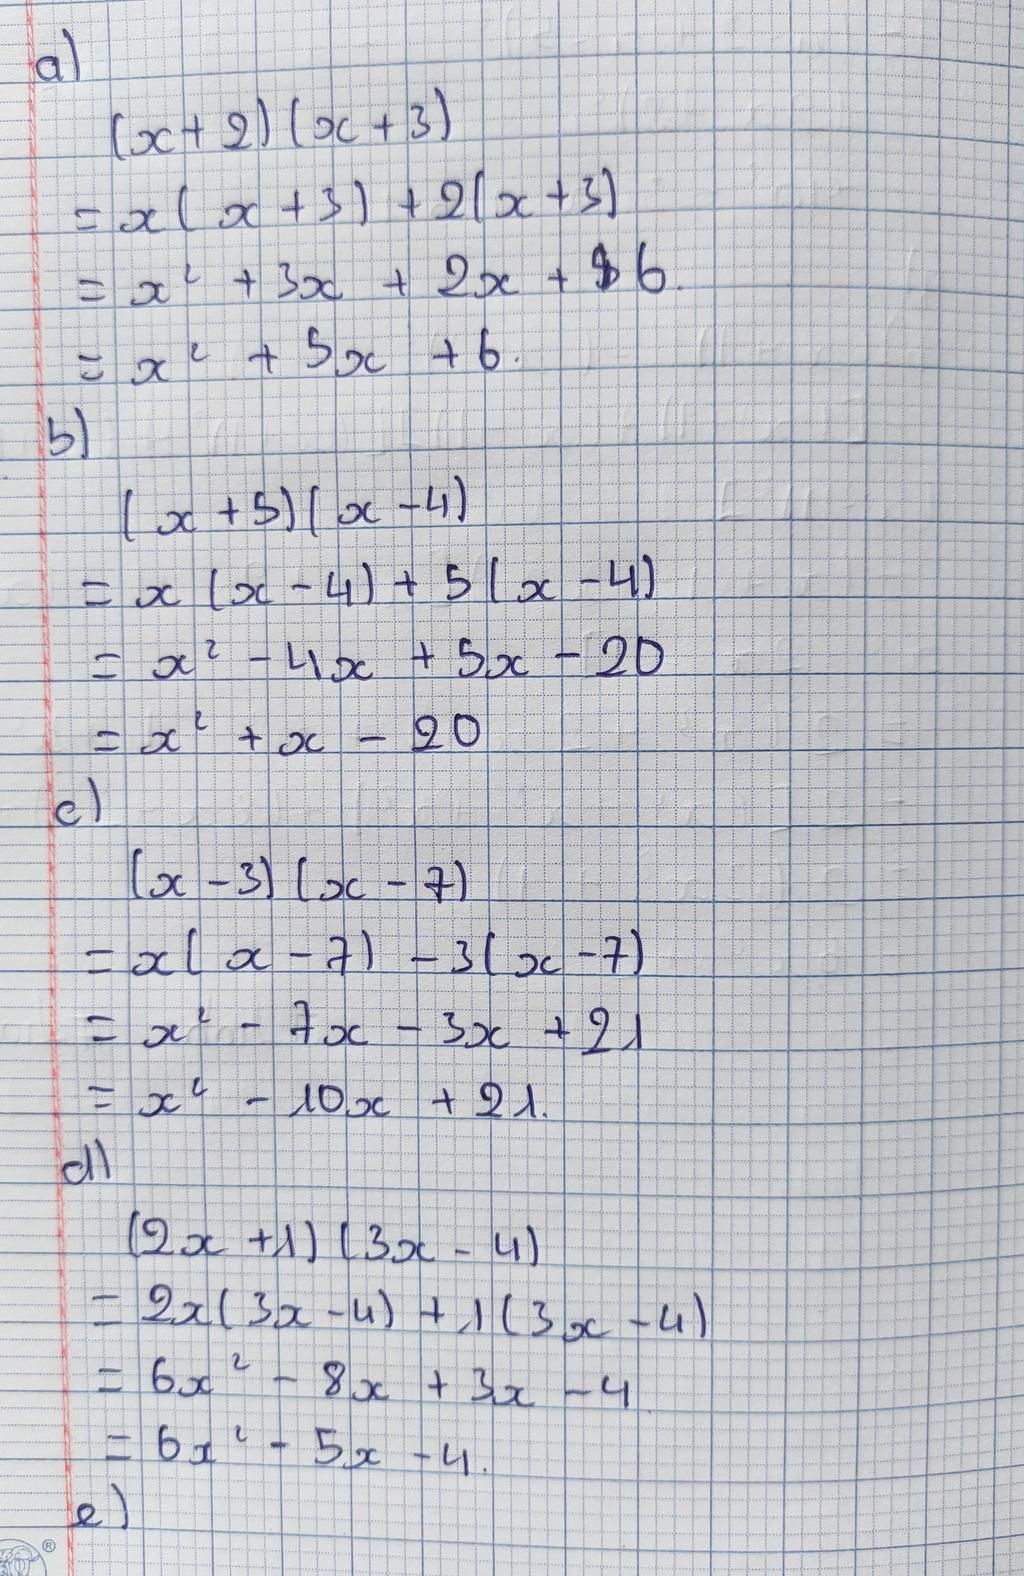 a)
(x+2)(x+3)
= x(x+3) + 2(x+3)
= x² + 3x + 2x + 6.
= x² + 5x + 6.
b)
(x+5)(x-4)
= x(x-4) + 5(x-4)
= x² - 4x + 5x - 20
= x² + x - 20
c)
(x-3)(x-7)
= x(x-7) - 3(x-7)
= x² - 7x - 3x + 21
= x² - 10x + 21.
d)
(2x+1)(3x-4)
= 2x(3x-4) + 1(3x-4)
= 6x² - 8x + 3x - 4.
= 6x² - 5x - 4.
e)
®